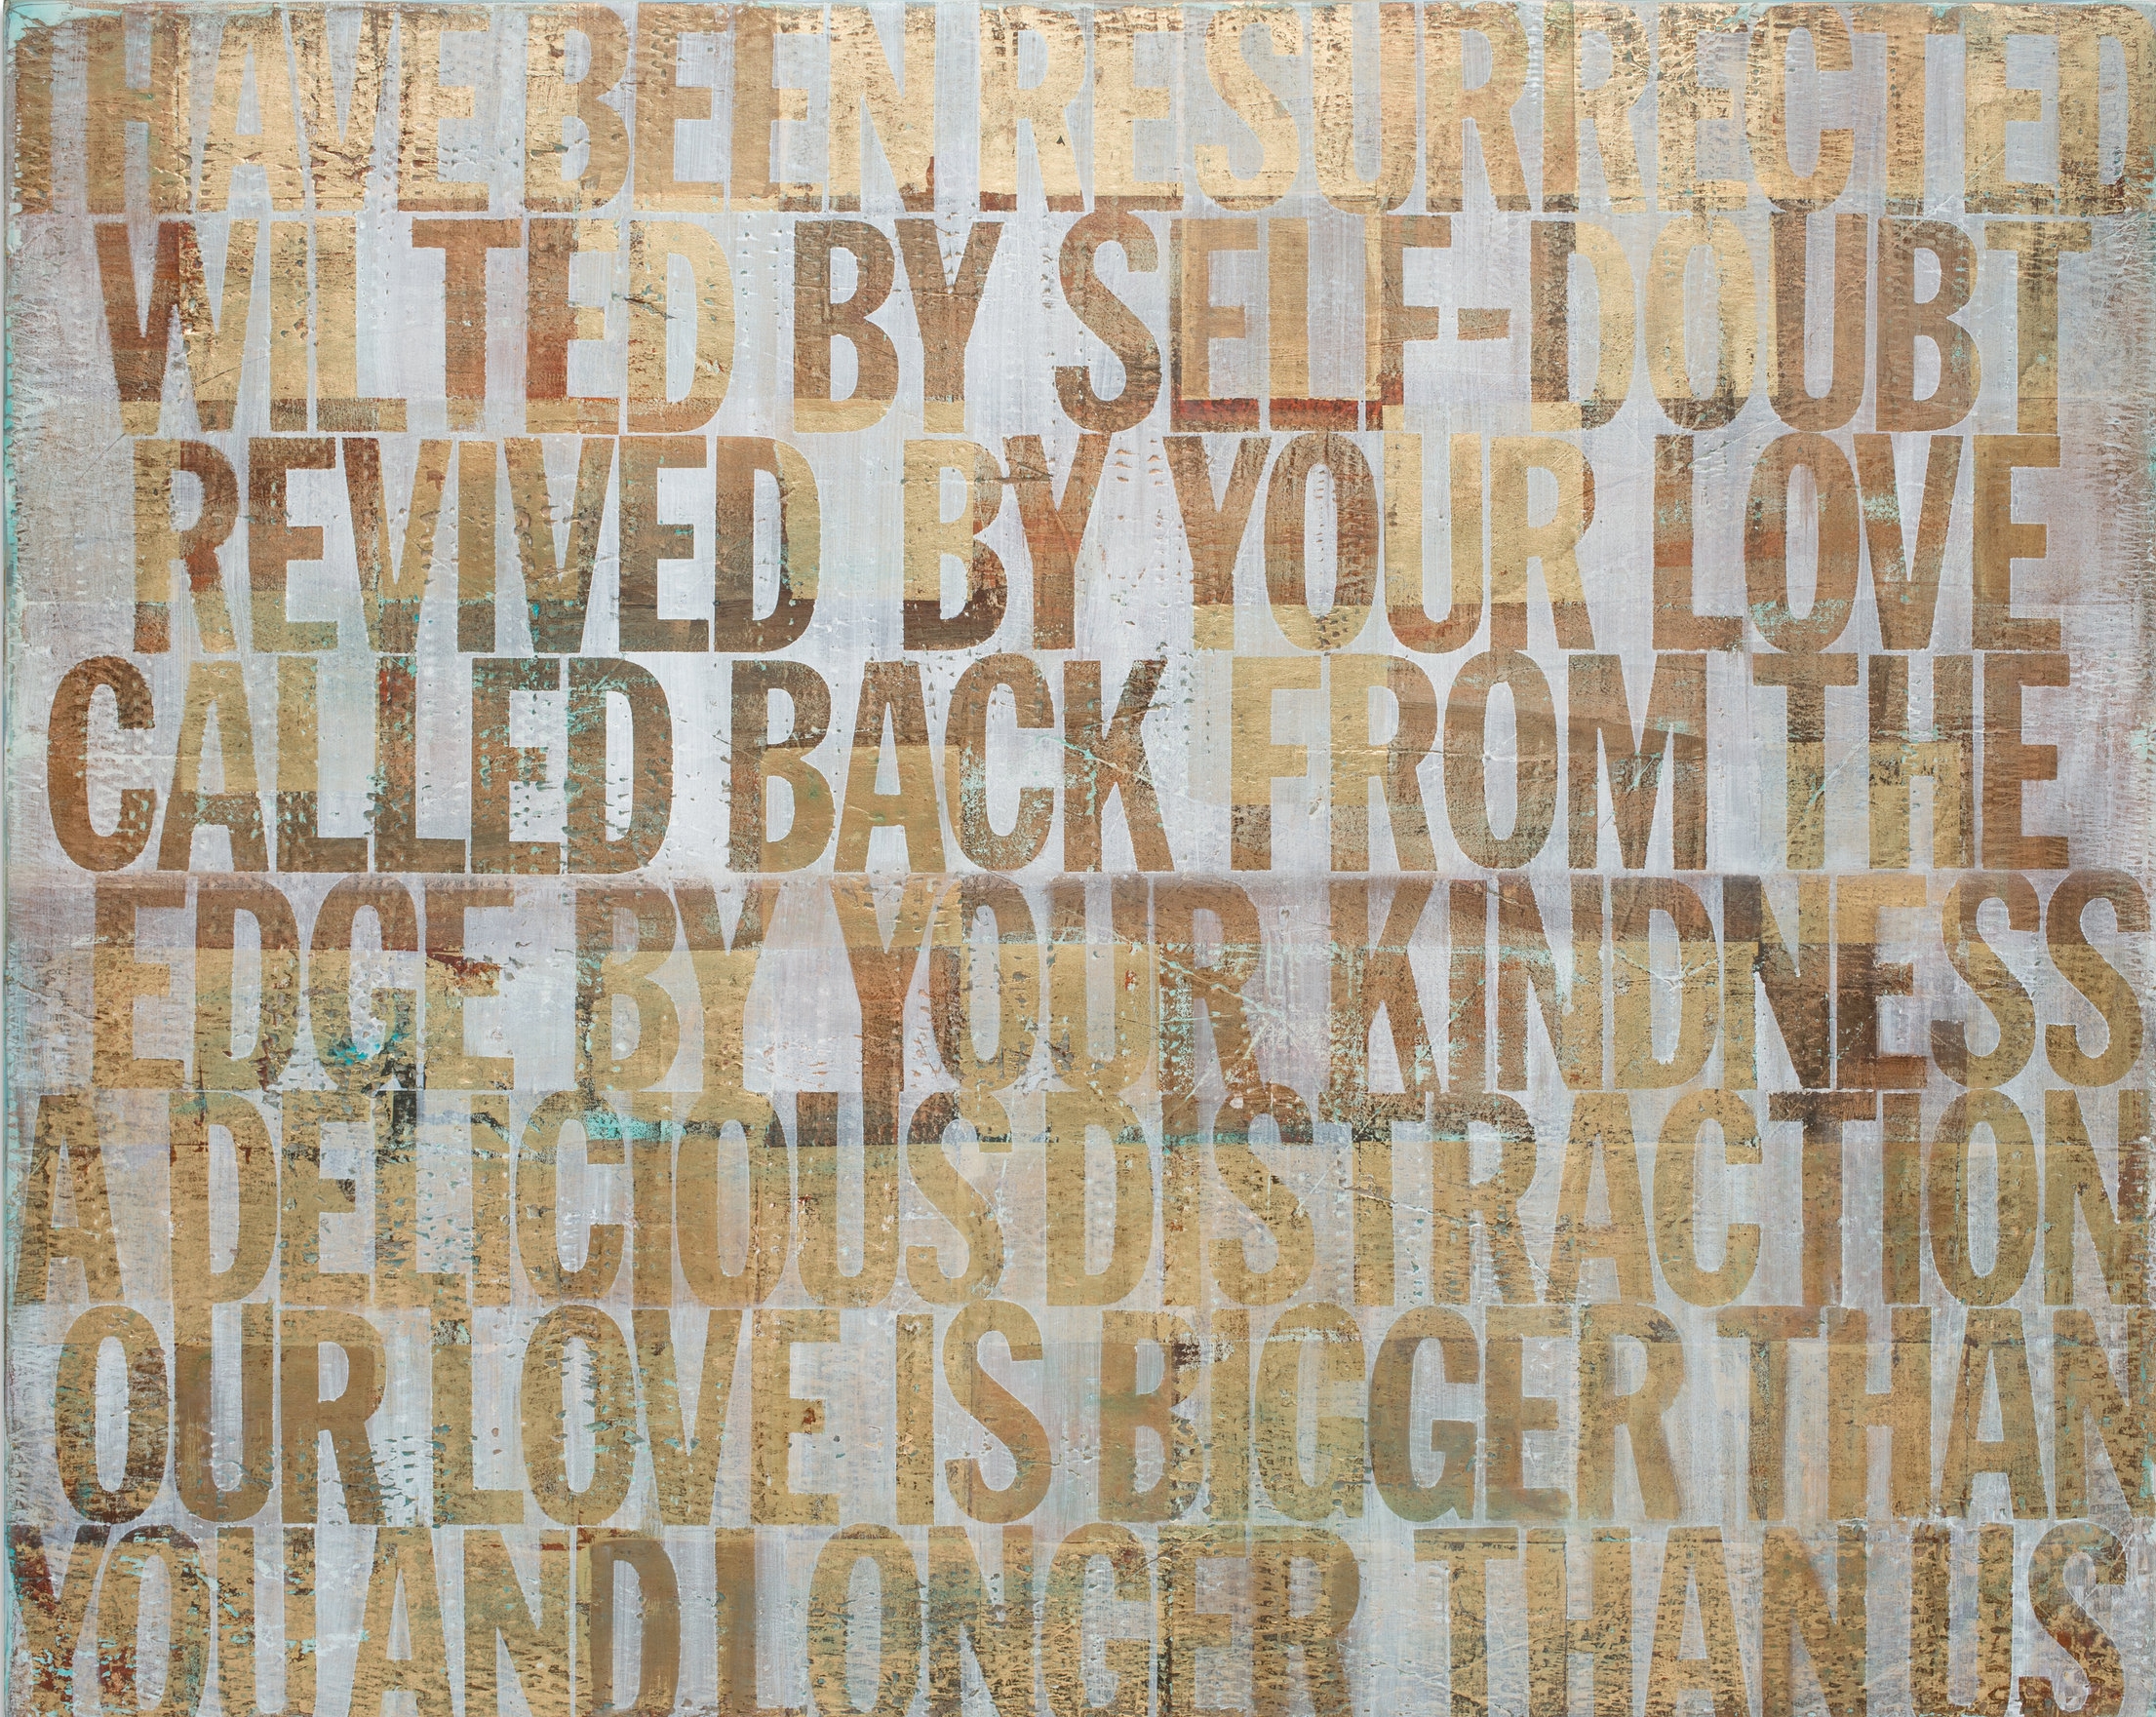 I HAVE BEEN RESURRECTED
WILTED BY SELF-DOUBT
REVIVED BY YOUR LOVE
CALLED BACK FROM THE
EDGE BY YOUR KINDNESS
A DELICIOUS DISTRACTION
OUR LOVE IS BIGGER THAN
YOU AND I LONGER THAN US